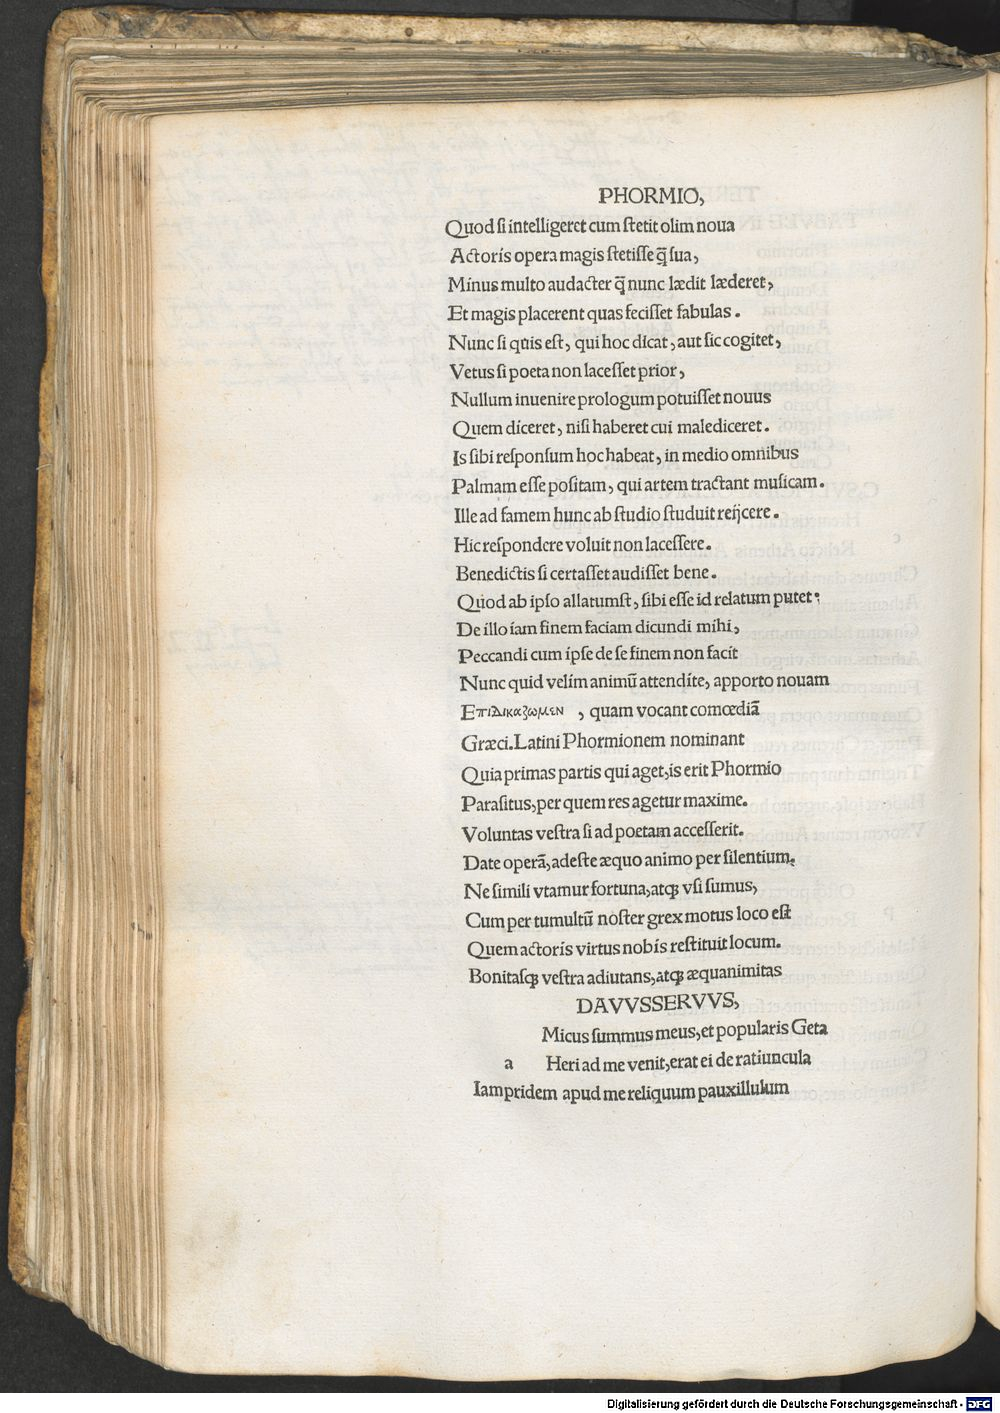 PHORMIO,
Quod ſi intelligeret cum ſtetit olim noua
Actoris opera magis ſtetiſſe q̃ ſua,
Minus multo audacter q̃ nunc lædit læderet,
Et magis placerent quas feciſſet fabulas.
Nunc ſi quis eſt, qui hoc dicat, aut ſic cogitet,
Vetus ſi poeta non laceſſet prior,
Nullum inuenire prologum potuiſſet nouus
Quem diceret, niſi haberet cui malediceret.
Is ſibi reſponſum hoc habeat, in medio omnibus
Palmam eſſe poſitam, qui artem tractant muſicam.
Ille ad famem hunc ab ſtudio ſtuduit reijcere.
Hic reſpondere voluit non laceſſere.
Benedictis ſi certaſſet audiſſet bene.
Quod ab ipſo allatumſt, ſibi eſſe id relatum putet:
De illo iam finem faciam dicundi mihi,
Peccandi cum ipſe de ſe finem non facit
Nunc quid velim animũ attendite, apporto nouam
Επιδικαζωμεν , quam vocant comœdiã
Græci. Latini Phormionem nominant
Quia primas partis qui aget, is erit Phormio
Paraſitus, per quem res agetur maxime.
Voluntas veſtra ſi ad poetam acceſſerit.
Date operã, adeſte æquo animo per ſilentium.
Ne ſimili vtamur fortuna, atqꝫ vſi ſumus,
Cum per tumultũ noſter grex motus loco eſt
Quem actoris virtus nobis reſtituit locum.
Bonitaſqꝫ veſtra adiutans, atqꝫ æquanimitas
DAVVSSERVVS,
Micus ſummus meus, et popularis Geta
a Heri ad me venit, erat ei de ratiuncula
Iampridem apud me reliquum pauxillulum
Digitalisierung gefördert durch die Deutsche Forschungsgemeinschaft - DFG